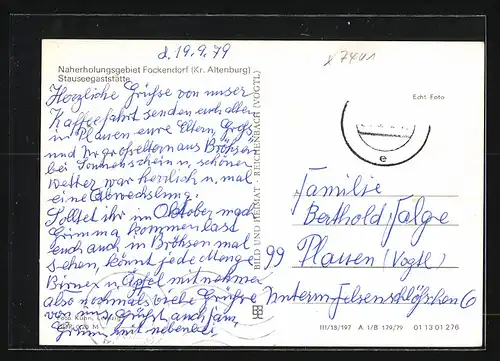 d. 19.9.79
x 7401
Naherholungsgebiet Fockendorf (Kr. Altenburg)
Stauseegaststätte
Echt Foto
Herzliche Grüße von unser
Kaffeefahrt senden euch allen
in Plauen eure Eltern, Groß
und Urgroßeltern aus Bröhsen
bei Sonnenschein u. schönen
Wetter war herrlich u. mal
eine Abwechslung.
Solltet ihr im Oktober nach
Grimma kommen last
euch auch in Bröhsen mal
sehen, könnt jede Menge
Birnen u. Äpfel mit nehmen
also nochmals viele Grüße
von uns. Grüßt auch fam.
Grimm mit nebenbei
Foto Kühn,
BILD UND HEIMAT · REICHENBACH (VOGTL)
e
Familie
Berthold Falge
99 Plauen (Vogtl)
Unterm Felsenschlößchen 6
III/18/197 A 1/B 179/79 01 13 01 276